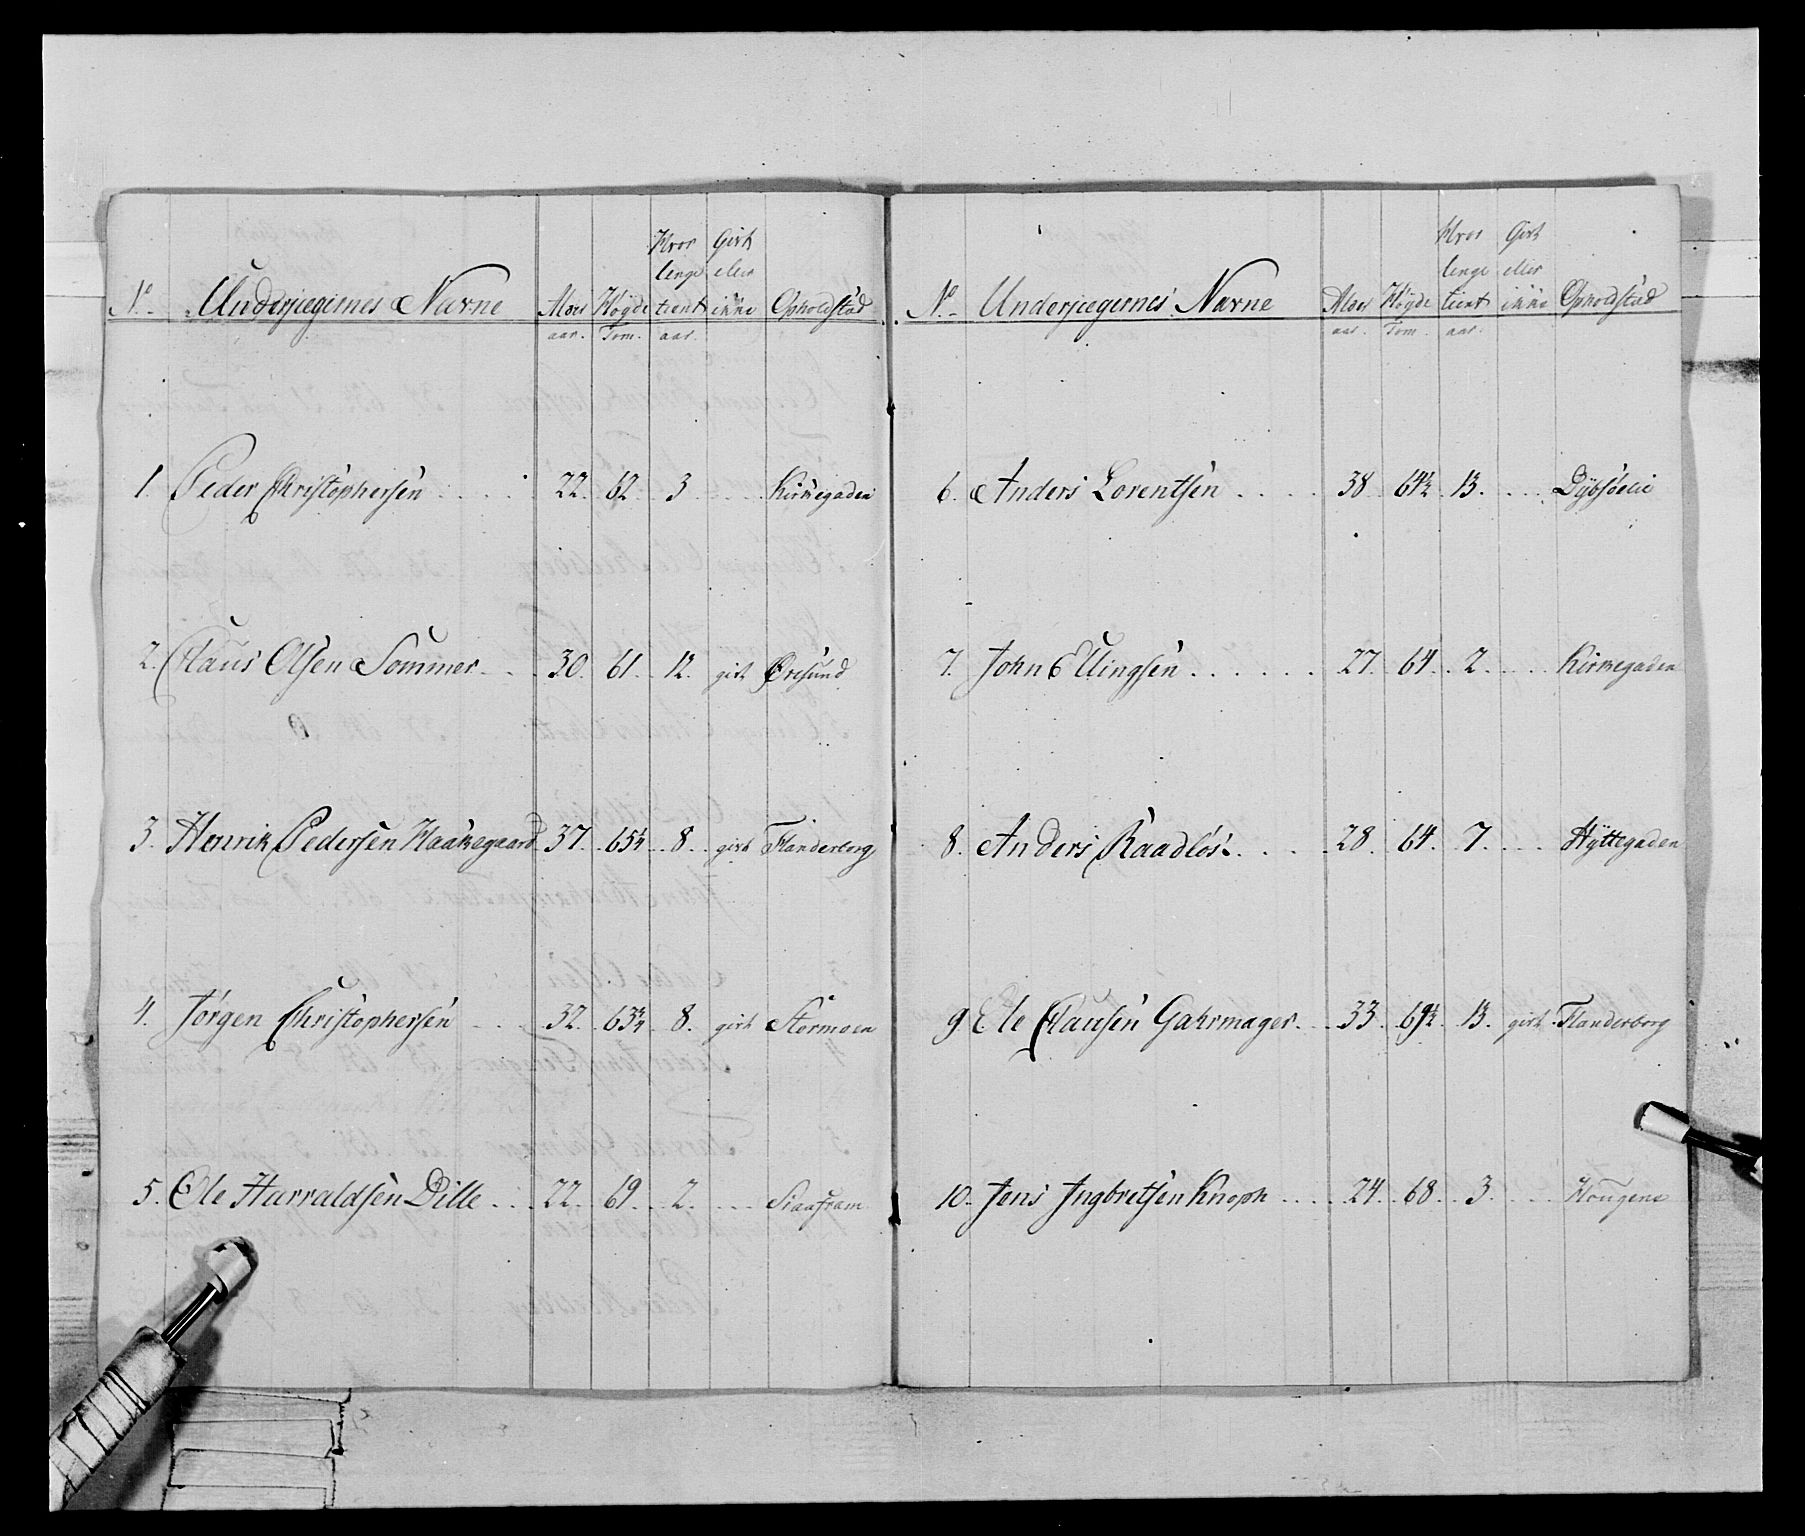 No. Underjægernes Navne Alder Høyde Hvor lenge tient Gift eller ikke Opholdstæd
aar. Tom. aar.
1. Peder Christophersen . . . . 22. 62. 3 . . . Kirkegaden
2. Claus Olsen Sommer . . . 30. 61. 12. gift Øresund
3. Henrik Pedersen Haakegaard 37. 65¼ . 8. . gift Flanderborg
4. Jørgen Christophersen . . . 32. 63¾ . 8. gift Stormoen
5. Ole Harraldsen Dille . . . 22. 69. . 2. . . .
No. Underjægernes Navne Alder Høyde Hvor lenge tient Gift eller ikke Opholdstæd
aar. Tom. aar.
6. Anders Lorentsen . . . . 38. 64½ . 13. . . . Dybsøelie
7. John Ellingsen . . . . . . 27. 64. . 2. . . . Kirkegaden
8. Anders Raadløs. . . . 28. 64. . 7. . . . Hyttegaden
9. Ole Clausen Gahrmager. . . 33. 69½ . 13. gift Flanderborg
10. Jens Ingbretsen Knoph . . . . 24. 68. . 3. . . . Hougene